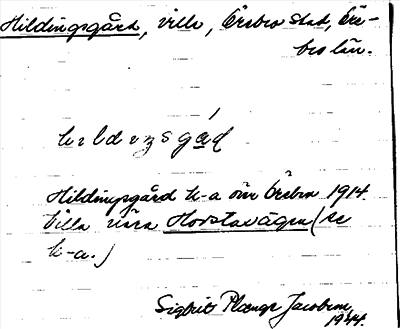 Hildingsgård, villa, Örebro stad, Öre-
bro län.
Hildingsgård k-a öv. Örebro 1914.
Villa nära Hovstavägen (se
k-a.)
Sigbrit Plænge Jacobson
1944.